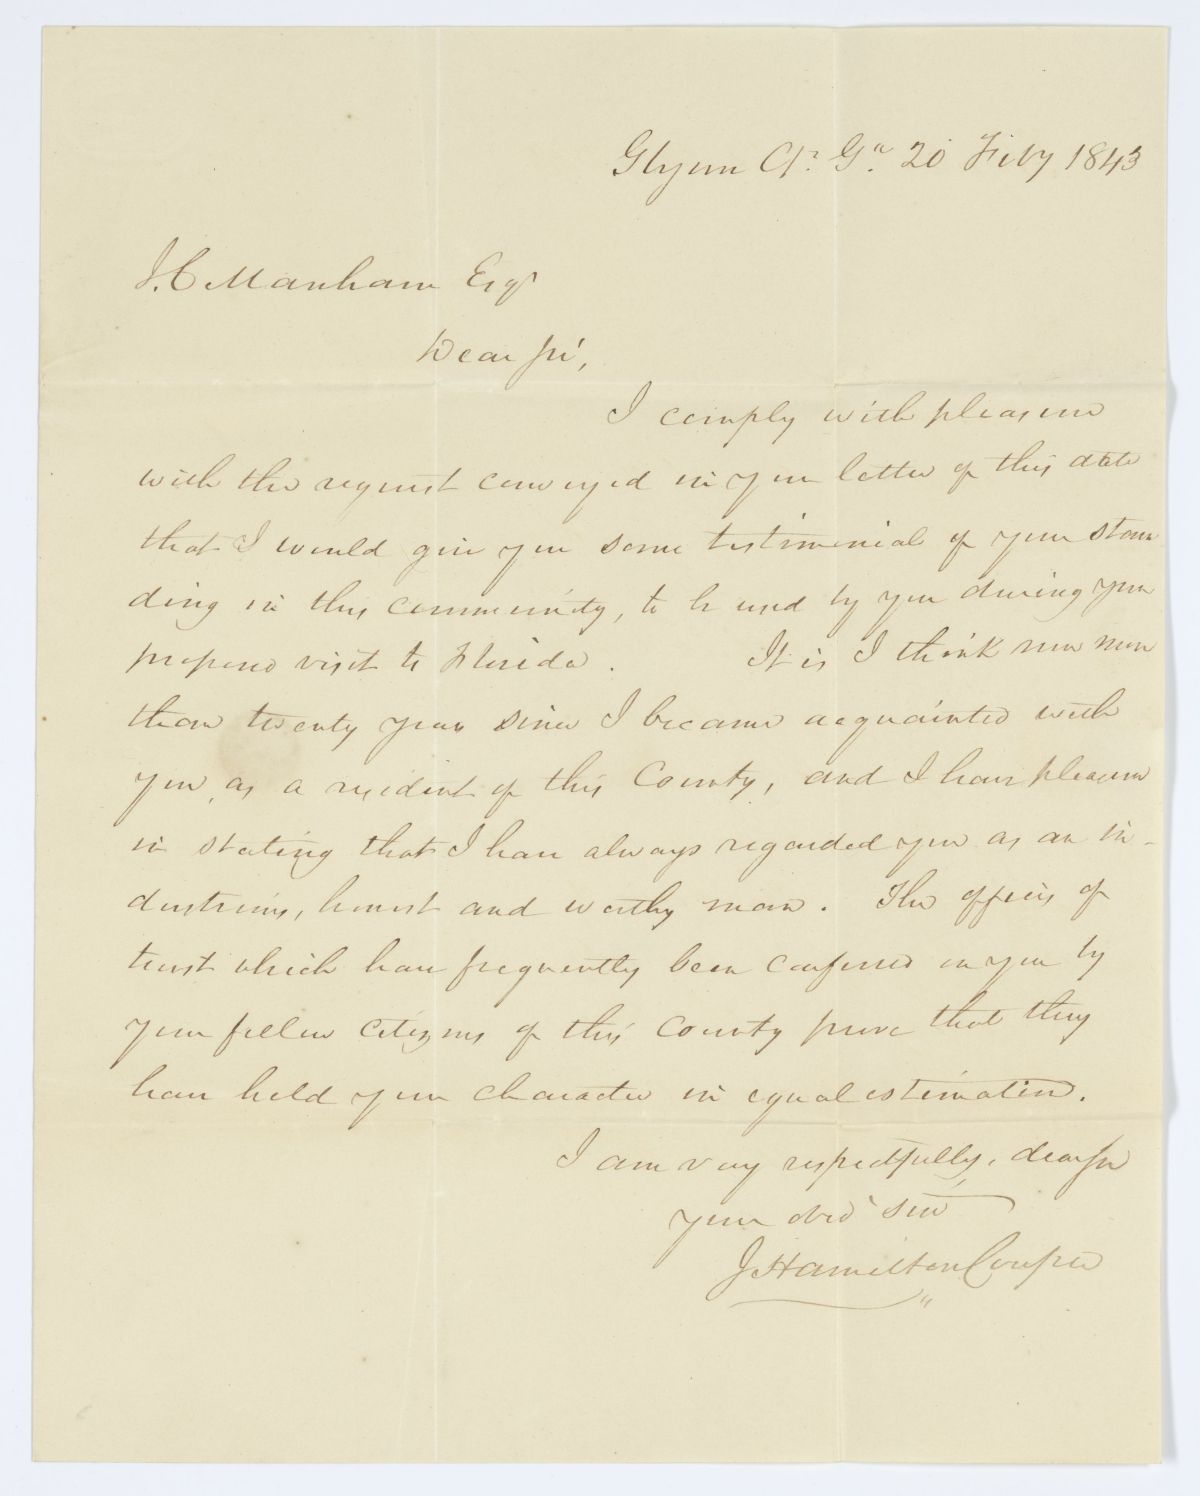 Glynn Cy. Ga. 20 Feby 1843
J. C Manham Esqr
Dear Sir,
I comply with pleasure
with the request conveyed in your letter of this date
that I would give you some testimonial of your stan
ding in this community, to be used by you during your
proposed visit to Florida. It is I think now more
than twenty years since I became acquainted with
you, as a resident of this County, and I have pleasure
in stating that I have always regarded you as an in-
dustrious, honest and worthy man. The offices of
trust which have frequently been conferred on you by
your fellow citizens of this County prove that they
have held your character in equal estimation.
I am very respectfully, dear Sir
your obed Svt
J Hamilton Couper